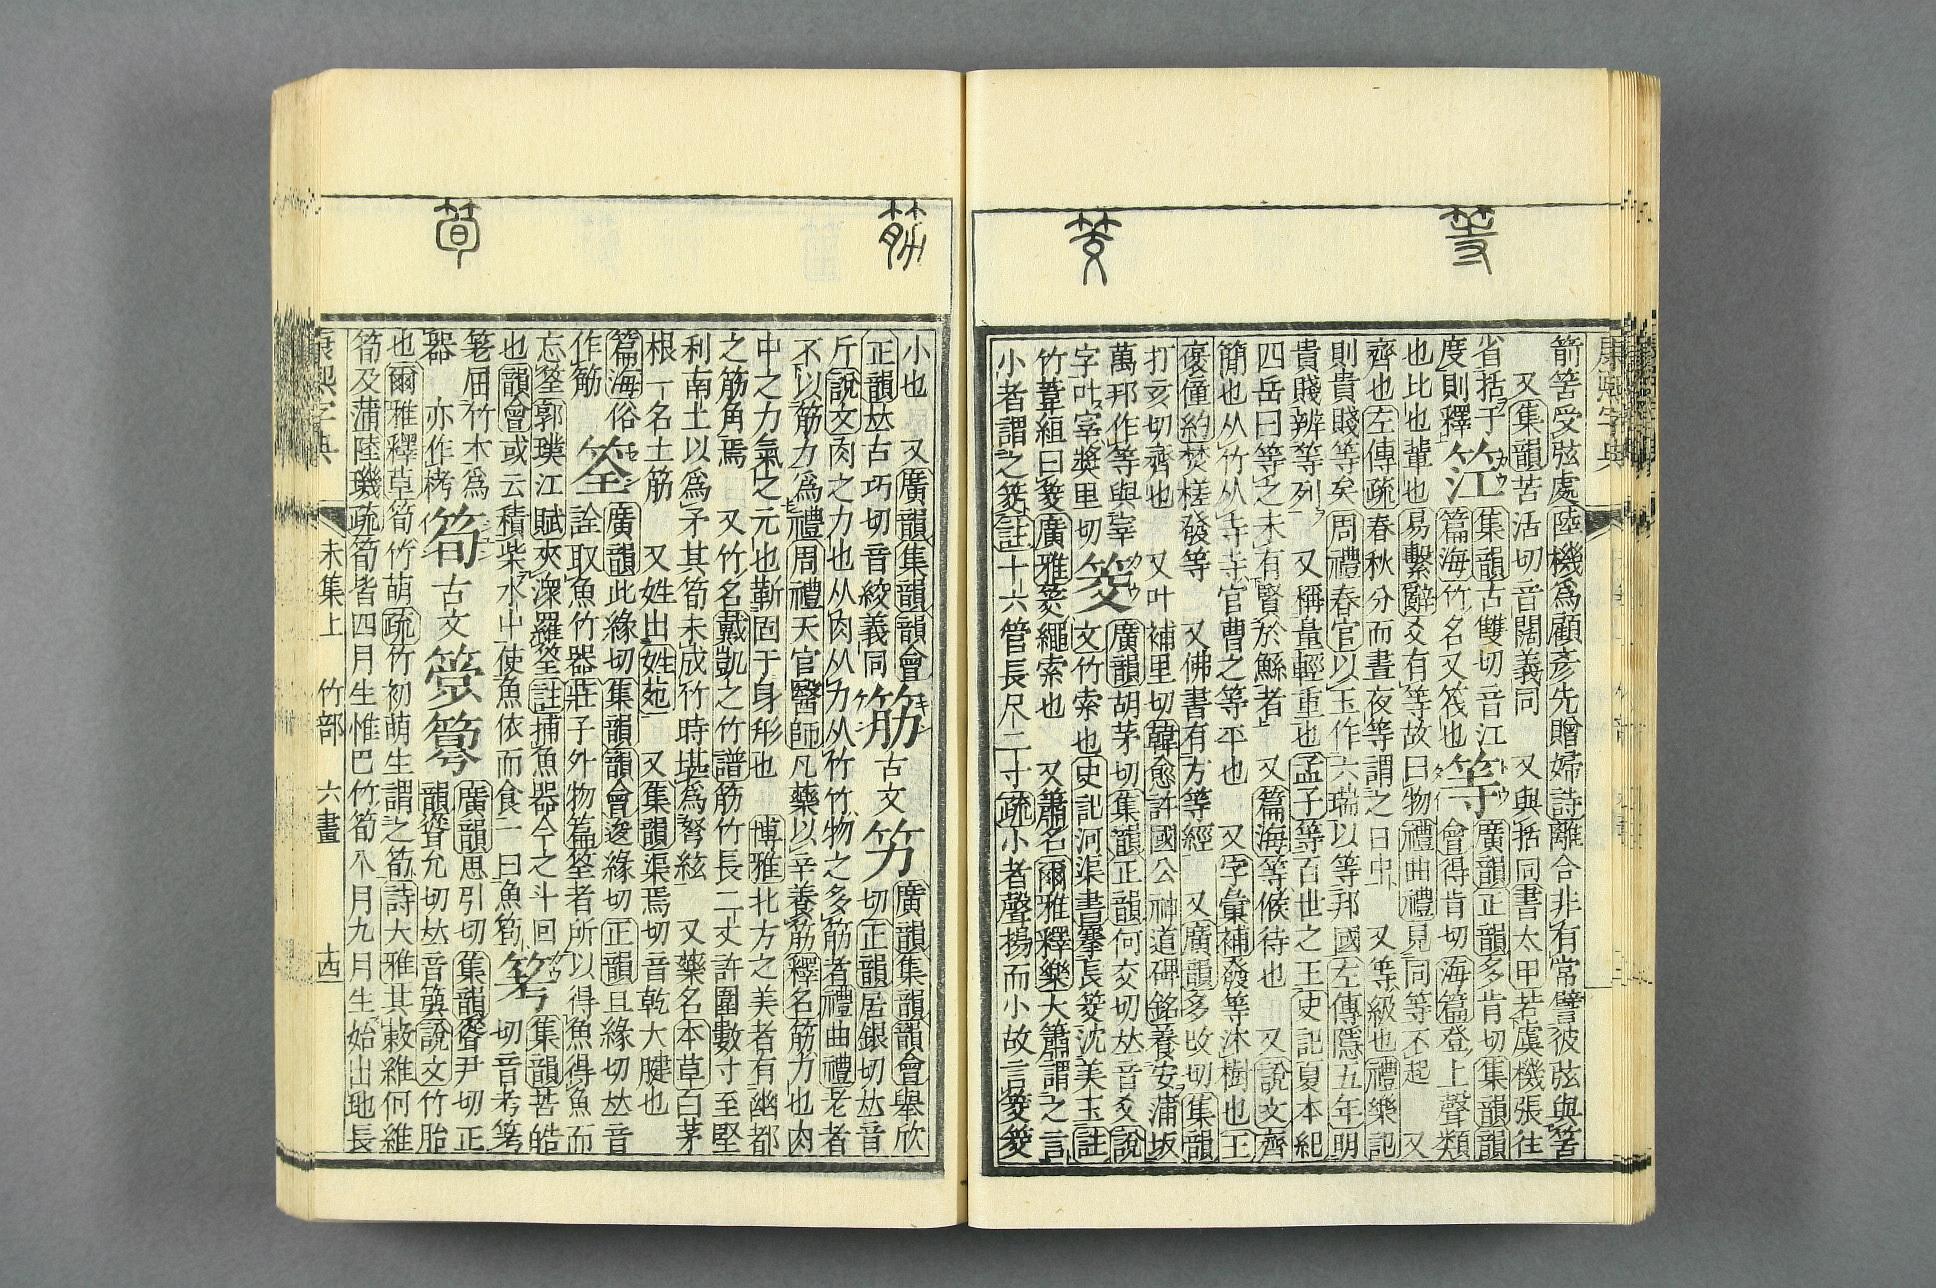 等
筊
箭筈受弦處陸機爲顧彥先贈婦詩離合非有常譬彼弦與筈
又集韻苦活切音闊義同 又與括同書太甲若虞機張往
省括于度則釋
笁 集韻古雙切音江
篇海竹名又筏也
等 廣韻正韻多肯切集韻韻會得肯切海篇登上聲類
也比也輩也易繫辭爻有等故曰物禮曲禮見同等不起 又
齊也左傳疏春秋分而晝夜等謂之日中 又等級也禮樂記
則貴賤等矣周禮春官以玉作六瑞以等邦國左傳隱五年明
貴賤辨等列 又稱量輕重也孟子等百世之王史記夏本紀
四岳曰等之未有賢於鯀者 又篇海等候待也 又說文齊
簡也从竹从寺寺官曹之等平也 又字彙補發等沐樹也王
褒僮約焚槎發等 又佛書有方等經 又廣韻多改切集韻
打亥切齊也 又叶補里切韓愈許國公神道碑銘養安蒲坂
萬邦作等與宰字叶宰奬里切
筊 廣韻胡茅切集韻正韻何交切𠀤音爻說
文竹索也史記河渠書搴長筊沈美玉註
竹葦絙曰筊廣雅筊繩索也 又簫名爾雅釋樂大簫謂之言
小者謂之筊註十六管長尺二寸疏小者聲揚而小故言筊筊
筋
筍
小也 又廣韻集韻韻會
正韻𠀤古巧切音絞義同
筋 古文 笏 廣韻集韻韻會舉欣
切正韻居銀切𠀤音
斤說文肉之力也从肉从力从竹竹物之多筋者禮曲禮老者
不以筋力爲禮周禮天官醫師凡藥以辛養筋釋名筋力也肉
中之力氣之元也靳固于身形也 博雅北方之美者有幽都
之筋角焉 又竹名戴凱之竹譜筋竹長二丈許圍數寸至堅
利南土以爲矛其筍未成竹時堪爲弩絃 又藥名本草白茅
根一名土筋 又姓出姓苑 又集韻渠焉切音乾大腱也
篇海俗作筋
筌 廣韻此緣切集韻韻會逡緣切正韻且緣切𠀤音
詮取魚竹器莊子外物篇筌者所以得魚得魚而
忘筌郭璞江賦夾潨羅筌註捕魚器今之斗回
也韻會或云積柴水中使魚依而食一曰魚笱
筹 集韻苦皓
切音考筹
筄屈竹木爲器 亦作栲
筍 古文 䇹 𥳍 廣韻思引切集韻聳尹切正
韻聳允切𠀤音簨說文竹胎
也爾雅釋草筍竹萌疏竹初萌生謂之筍詩大雅其蔌維何維
筍及蒲陸璣疏筍皆四月生惟巴竹筍八月九月生始出地長
康熙字典 未集上 竹部 六畫 十四